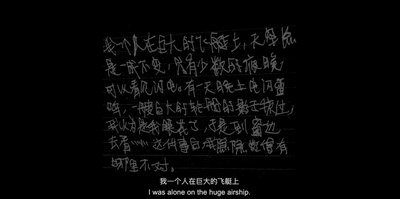 我一个人在巨大的飞艇上,天气总
是一成不变,只有少数的夜晚
可以看见闪电。有一天晚上电闪雷
鸣,一艘巨大的轮船的影子掠过,
我以为是我眼花了,于是到窗边
去看…… 这件事日
哪里不对。
我一个人在巨大的飞艇上
I was alone on the huge airship.